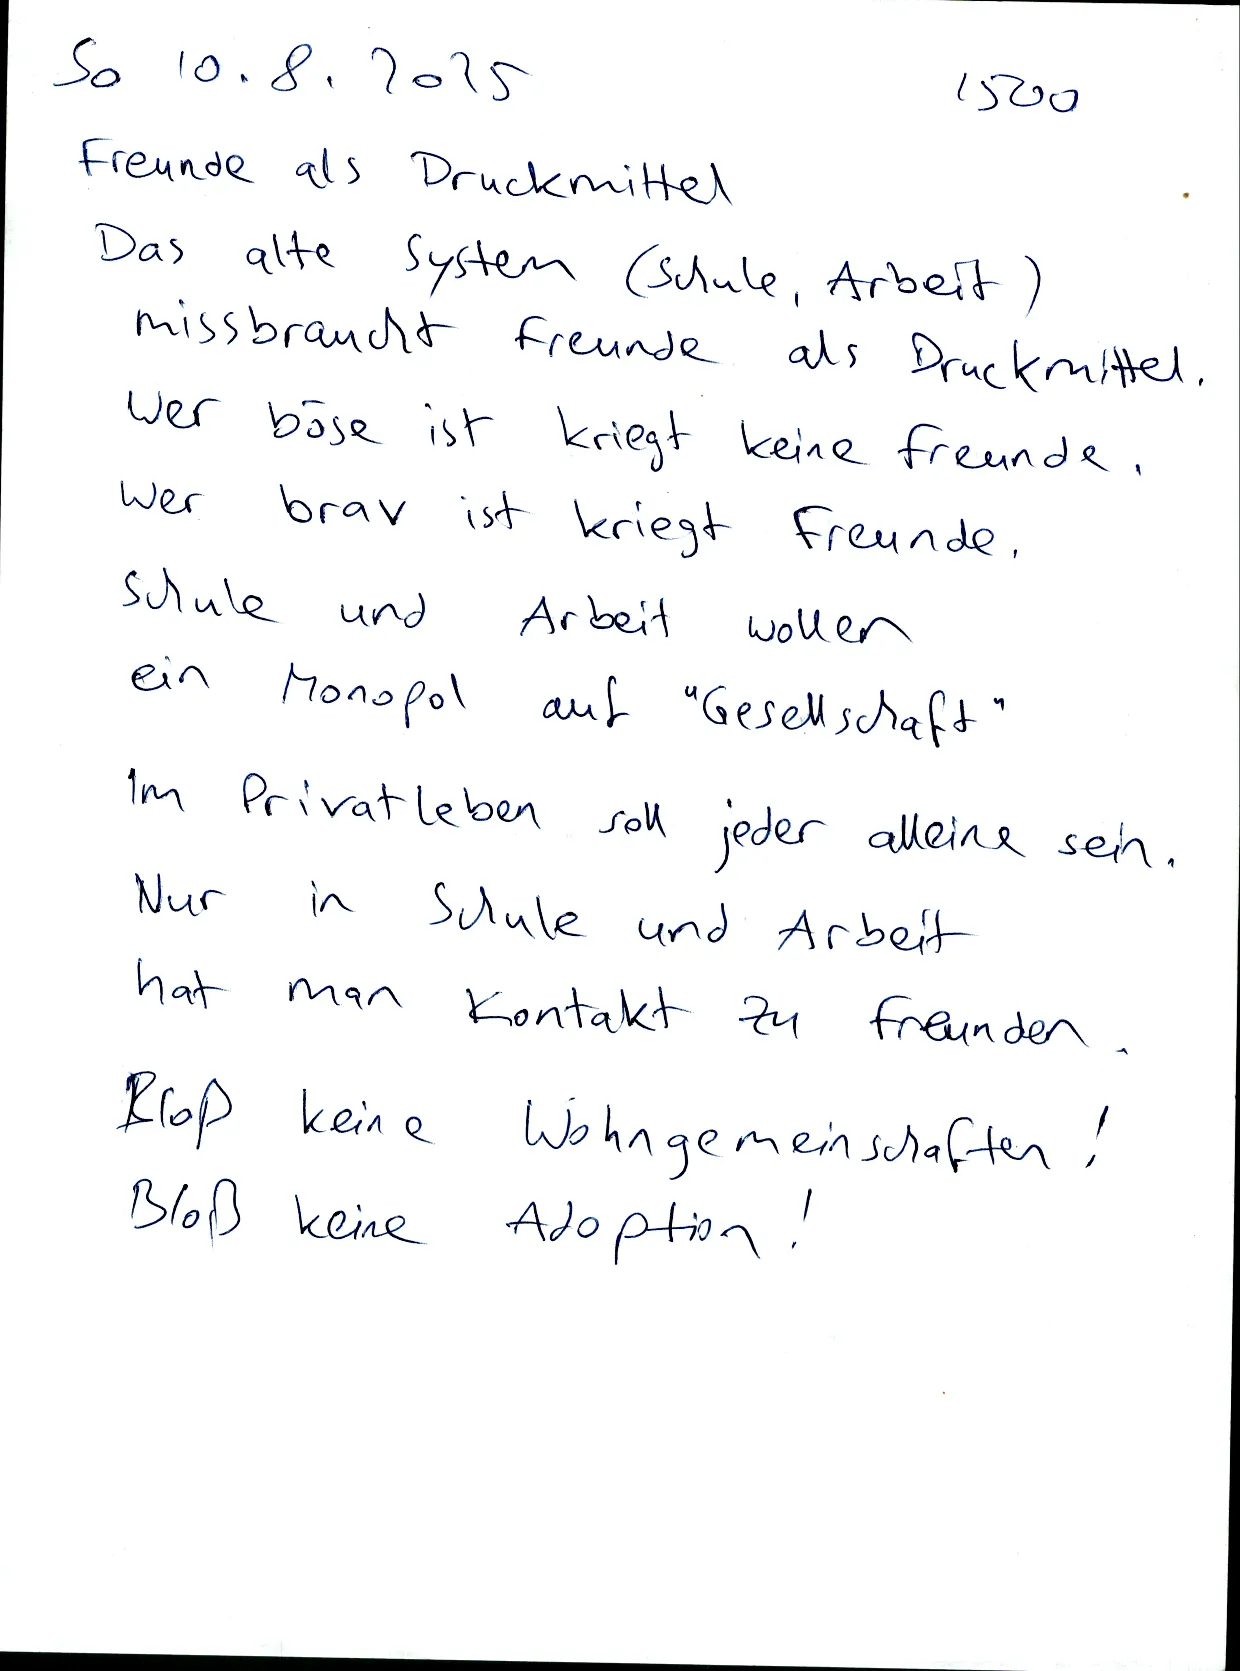 So 10.8.2025 1500
Freunde als Druckmittel
Das alte System (Schule, Arbeit)
missbraucht Freunde als Druckmittel.
Wer böse ist kriegt keine Freunde.
Wer brav ist kriegt Freunde.
Schule und Arbeit wollen
ein Monopol auf "Gesellschaft"
Im Privatleben soll jeder alleine sein.
Nur in Schule und Arbeit
hat man Kontakt zu Freunden.
Bloß keine Wohngemeinschaften!
Bloß keine Adoption!